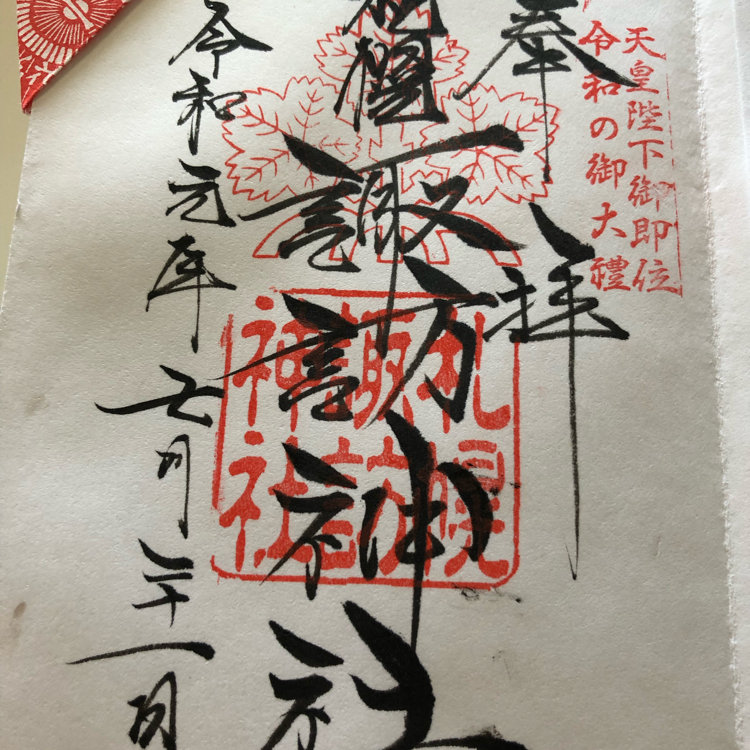 天皇陛下御即位
令和の御大禮
奉拝
札幌
諏訪神社
札幌
諏訪
神社
令和元年七月二十一日